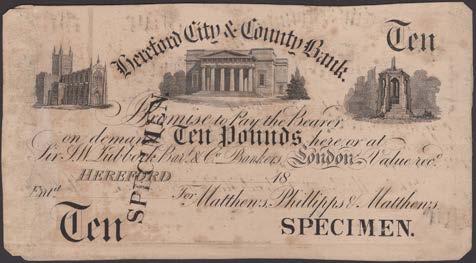 Hereford City & County Bank.
Ten
I Promise to Pay the Bearer
on demand Ten Pounds here or at
Sir J.W. Lubbock Bart. & Co. Bankers London Value recd.
HEREFORD 18
Entd.
For Matthews, Phillipps & Matthews,
Ten
SPECIMEN.
SPECIMEN